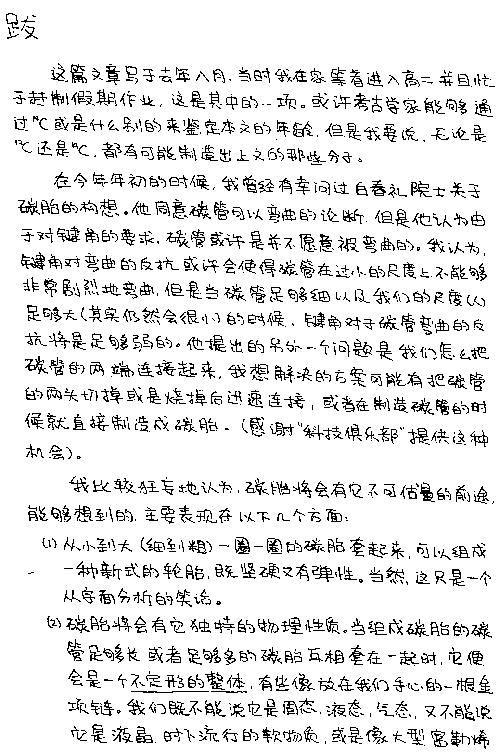 跋
这篇文章写于去年八月,当时我在家等着进入高二并且忙
于赶制假期作业,这是其中的一项。或许考古学家能够通
过¹⁴C或是什么别的来鉴定本文的年龄,但是我要说,无论是
¹²C还是¹⁴C,都有可能制造出上文的那些分子。
在今年年初的时候,我曾经有幸问过白春礼院士关于
碳胎的构想。他同意碳管可以弯曲的论断,但是他认为由
于对键角的要求,碳管或许是并不愿意被弯曲的。我认为,
键角对弯曲的反抗或许会使得碳管在过小的尺度上不能够
非常剧烈地弯曲,但是当碳管足够细以及我们的尺度(L)
足够大(其实仍然会很小)的时候,键角对于碳管弯曲的反
抗将是足够弱的。他提出的另外一个问题是我们怎么把
碳管的两端连接起来,我想解决的方案可能有把碳管
的两头切掉或是烧掉后迅速连接,或者在制造碳管的时
候就直接制造成碳胎。(感谢“科技俱乐部”提供这种
机会)。
我比较狂妄地认为,碳胎将会有它不可估量的前途,
能够想到的,主要表现在以下几个方面:
(1)从小到大(细到粗)一圈一圈的碳胎套起来,可以组成
一种新式的轮胎,既坚硬又有弹性。当然,这只是一个
从字面分析的笑话。
(2)碳胎将会有它独特的物理性质。当组成碳胎的碳
管足够长或者足够多的碳胎互相套在一起时,它便
会是一个不定形的整体,有些像放在我们手心的一根金
项链。我们既不能说它是固态、液态、气态,又不能说
它是液晶、时下流行的软物质,或是像大型富勒烯